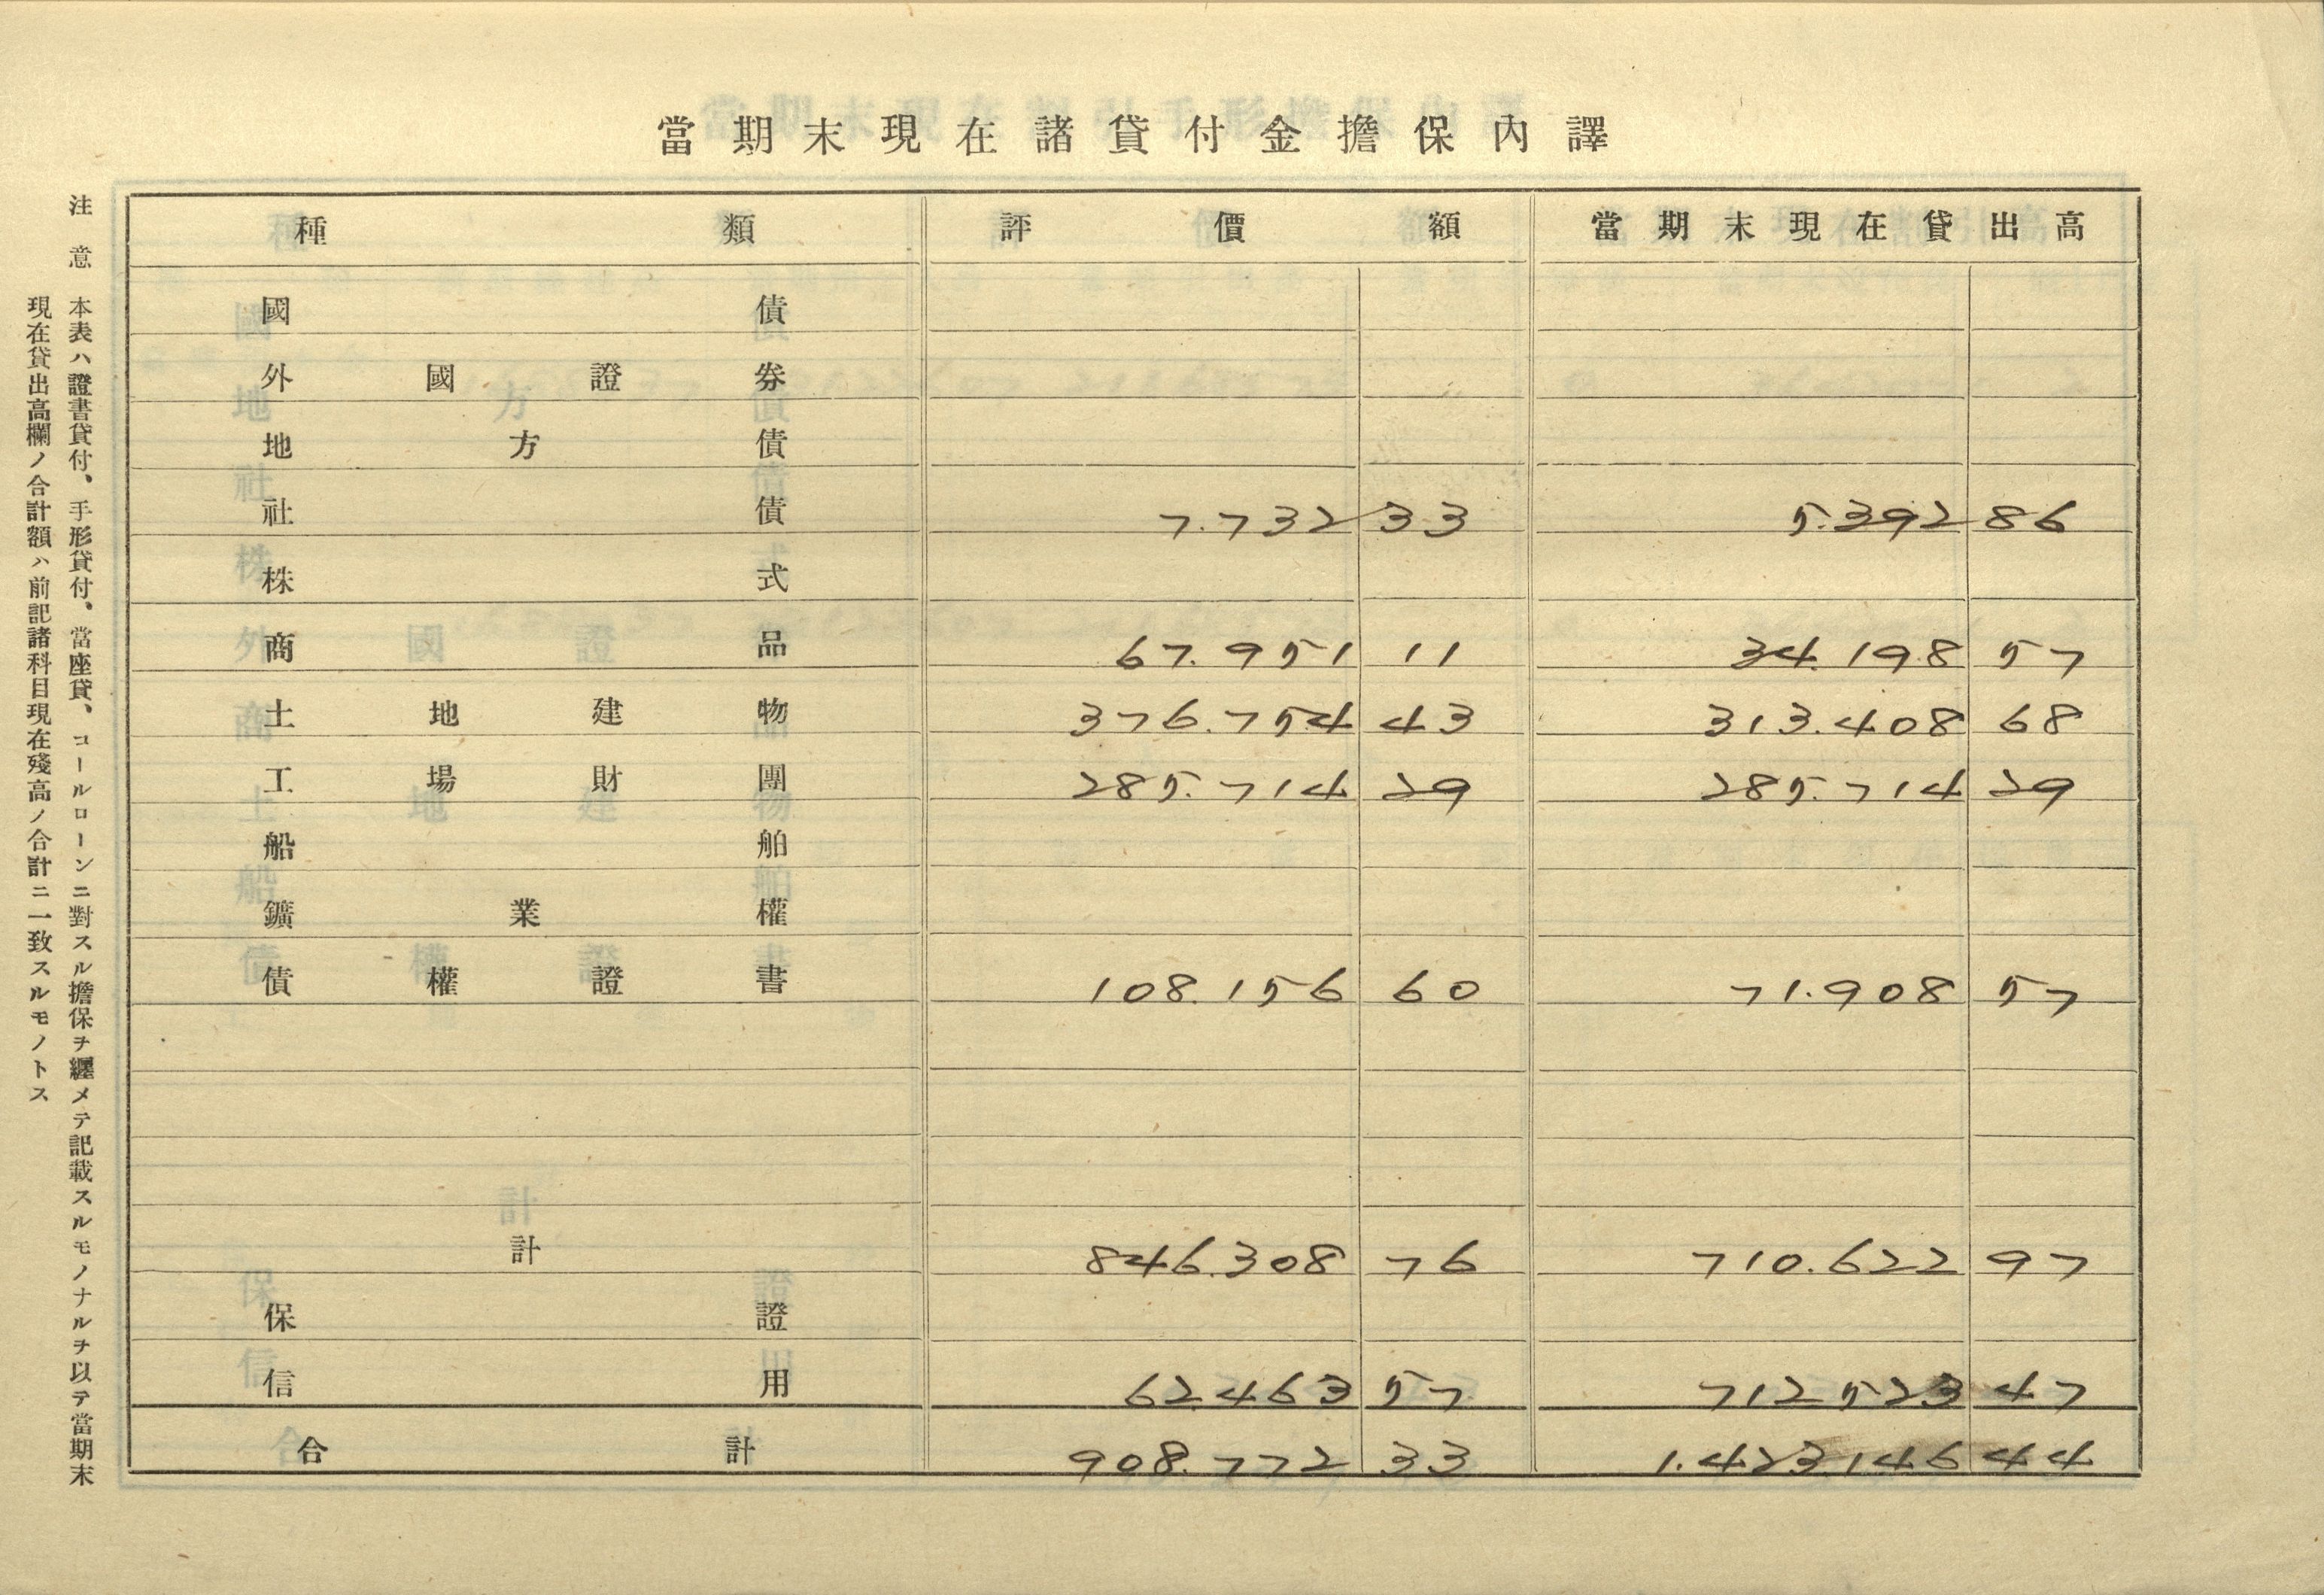 當期末現在諸貸付金擔保內譯
種類 評價額 當期末現在貸出高
國債
外國證券
地方債
社債 7.732 33 5.392 86
株式
商品 67.951 11 34.198 57
土地建物 376.754 43 313.408 68
工場財團 285.714 29 285.714 29
船舶
鑛業權
債權證書 108.156 60 71.908 57
計 846.308 76 710.622 97
保證
信用 62.463 57 712.523 47
合計 908.772 33 1.423.146 44
注意 本表ハ證書貸付、手形貸付、當座貸、コールローンニ對スル擔保ヲ纒メテ記載スルモノナルヲ以テ當期末
現在貸出高欄ノ合計額ハ前記諸科目現在殘高ノ合計ニ一致スルモノトス